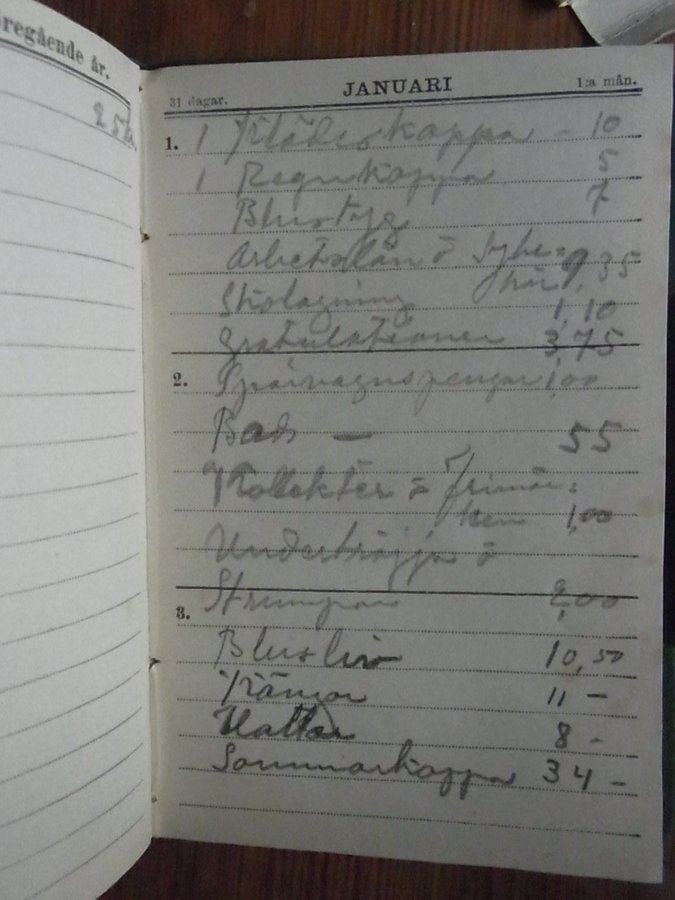 oregående år.
25
JANUARI
31 dagar.
1:a mån.
1. 1 Klädeskappa - 10
1 Regnkappa 5
Blustyg 7
Arbetslön o Sybe=
hör 9,35
Skolagning 1,10
Gratulationer 3,75
2. Spårvagnspengar 1,00
Bad — 55
Kollekter o Frimär=
ken 1,00
Undertröjja o
Strumpor 2,00
3. Blusliv 10,50
Kängor 11 -
Hattar 8 -
Sommarkappa 34 -